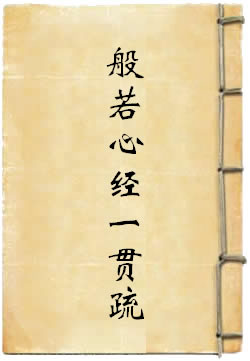 般若心经一贯疏